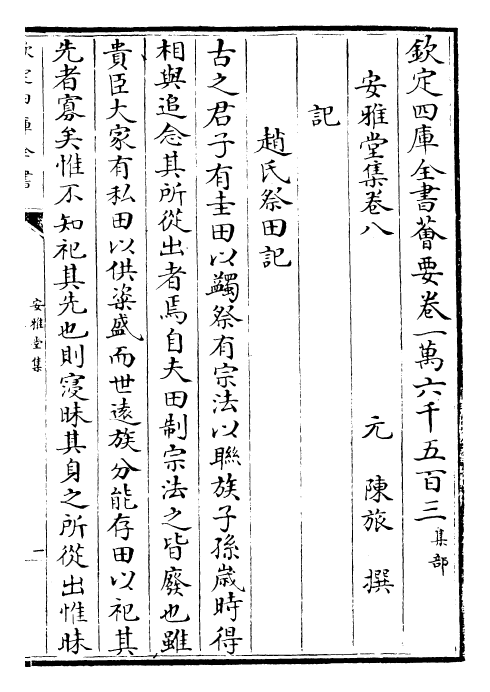 欽定四庫全書薈要卷一萬六千五百三集部
安雅堂集卷八
元 陳旅 撰
記
趙氏祭田記
古之君子有圭田以蠲祭有宗法以聯族子孫歲時得
相與追念其所從出者焉自夫田制宗法之皆廢也雖
貴臣大家有私田以供粢盛而世逺族分能存田以祀其
先者寡矣惟不知祀其先也則寖昧其身之所從出惟昧
欽定四庫全書
安雅堂集
一